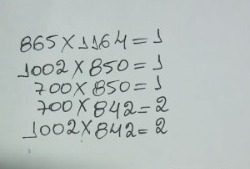 865×1164=1
1002×850=1
700×850=1
700×842=2
1002×842=2